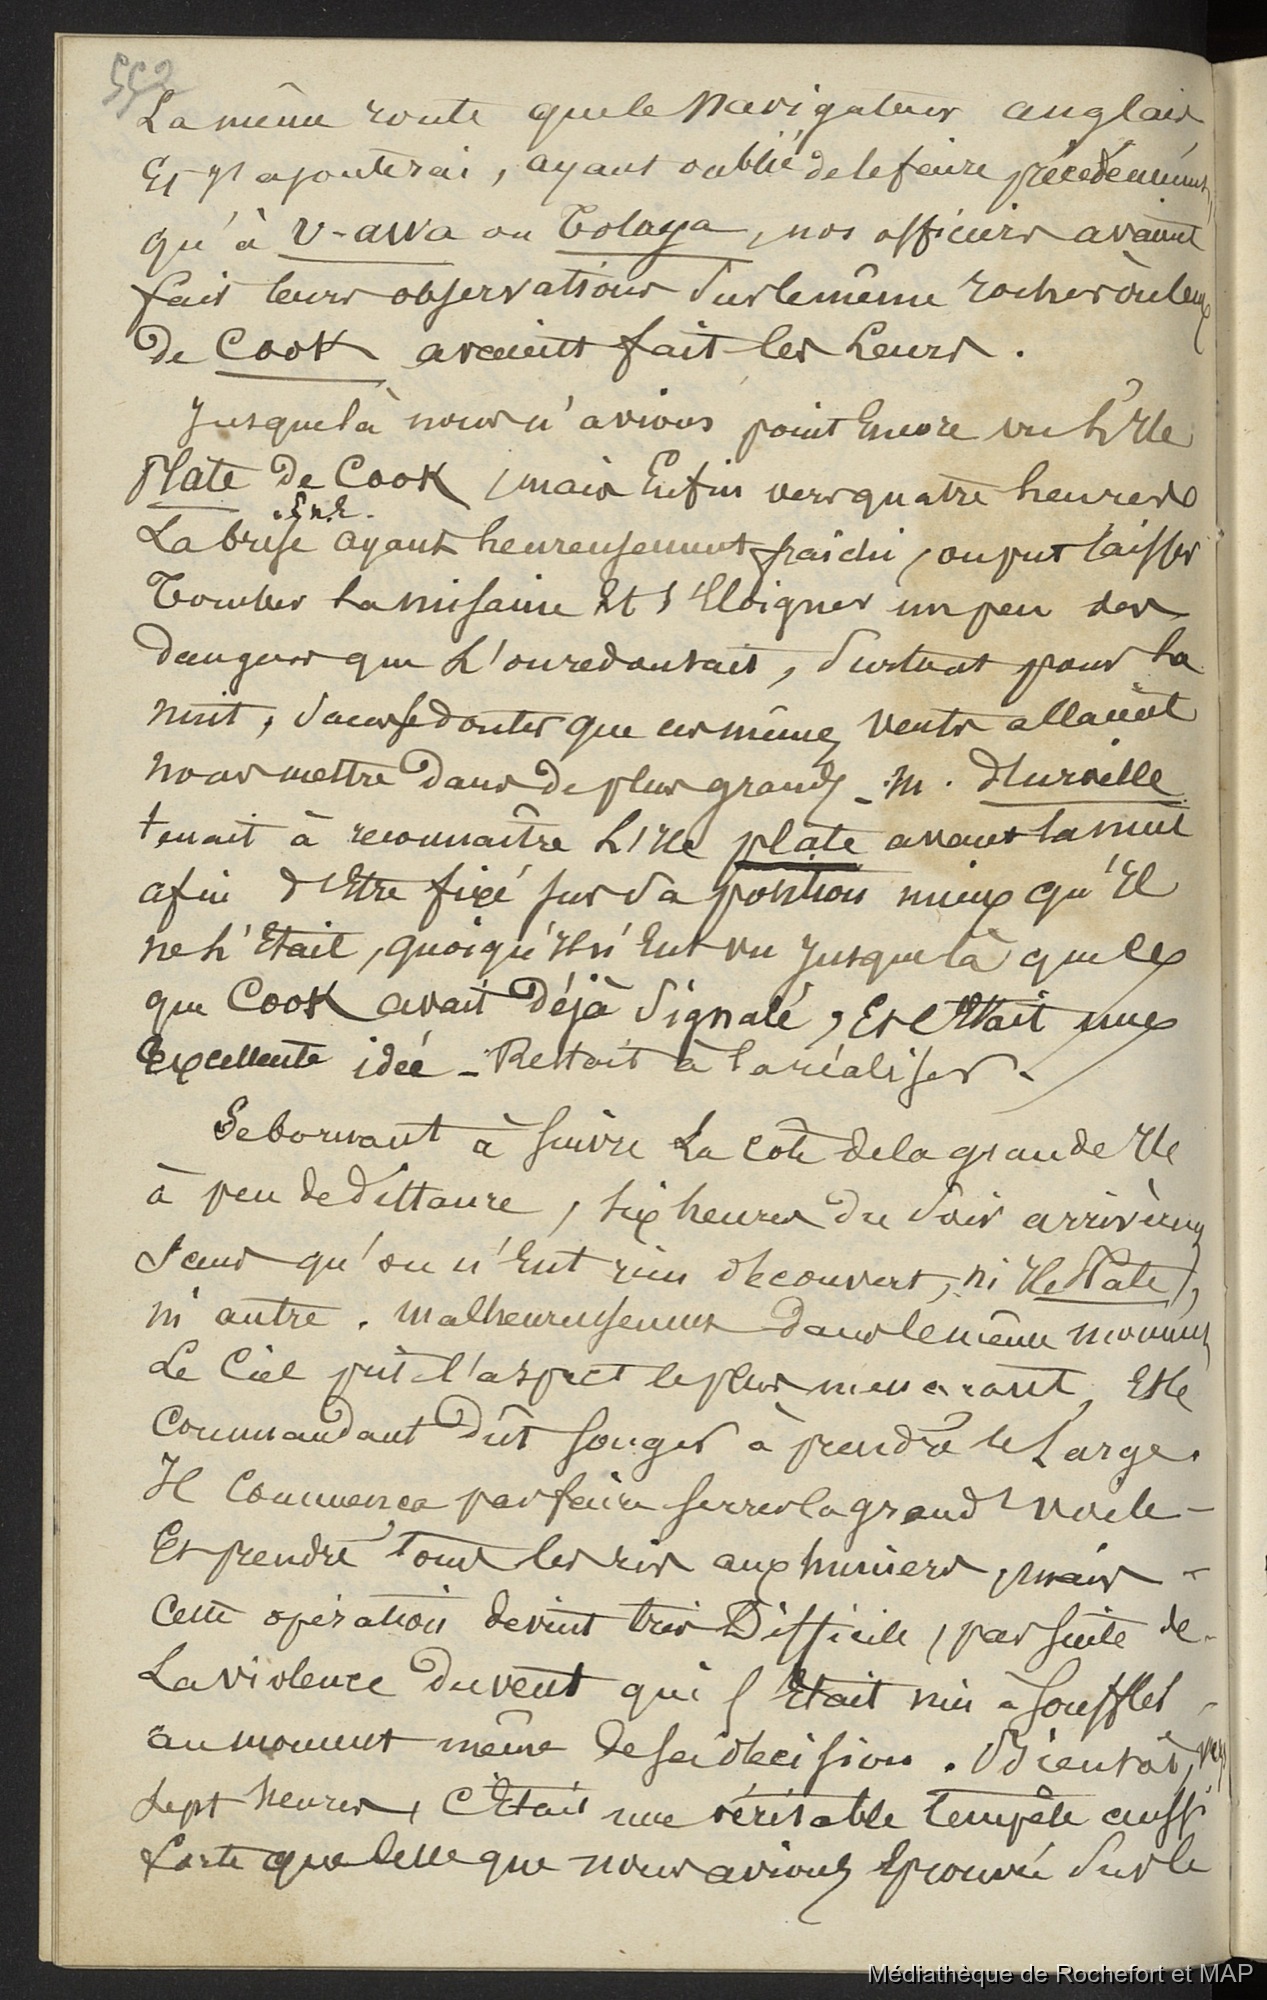 552
La même route que le Navigateur anglais
Et j'y ajouterai, ayant oublié de le faire précédemment,
qu'à V-awa ou Tolaga, nos officiers avaient
fait leurs observations sur le même rocher où ceux
de Cook avaient fait les Leurs.
Jusque là nous n'avions point Encore vu L'Ile
Plate de Cook, mais Enfin vers quatre heures
E.N.E.
La brise ayant heureusement fraîchi, on put laisser
Tomber la misaine Et s'Eloigner un peu des
dangers que L'on redoutait, surtout pour la
nuit, sans se douter que ces mêmes vents allaient
nous mettre dans de plus grands - M. d'Urville
tenait à reconnaître L'Ile plate avant la nuit
afin d'Etre fixé sur sa position mieux qu'Il
ne L'Etait, quoiqu'Il n'Eut vu jusque là que ce
que Cook avait Déjà signalé, Et c'Etait une
Excellente idée - Restait à la réaliser.
Se bornant à suivre La côte de la grande Ile
à peu de distance, six heures du soir arrivèrent
sans qu'on n'Eut rien découvert, ni Ile Plate,
ni autre. Malheureusement dans le même moment
Le Ciel prit l'aspect le plus menaçant, Et le
Commandant Dût songer à prendre le Large.
Il Commença par faire serrer la grand'voile -
Et prendre tous les ris aux huniers, mais -
Cette opération devint très Difficile, par suite de
La violence du vent qui s'Etait mis à souffler
au moment même de sa décision. Bientôt, vers
Sept heures, C'Etait une véritable tempête aussi
forte que celle que nous avions Eprouvée sur le
Médiathèque de Rochefort et MAP